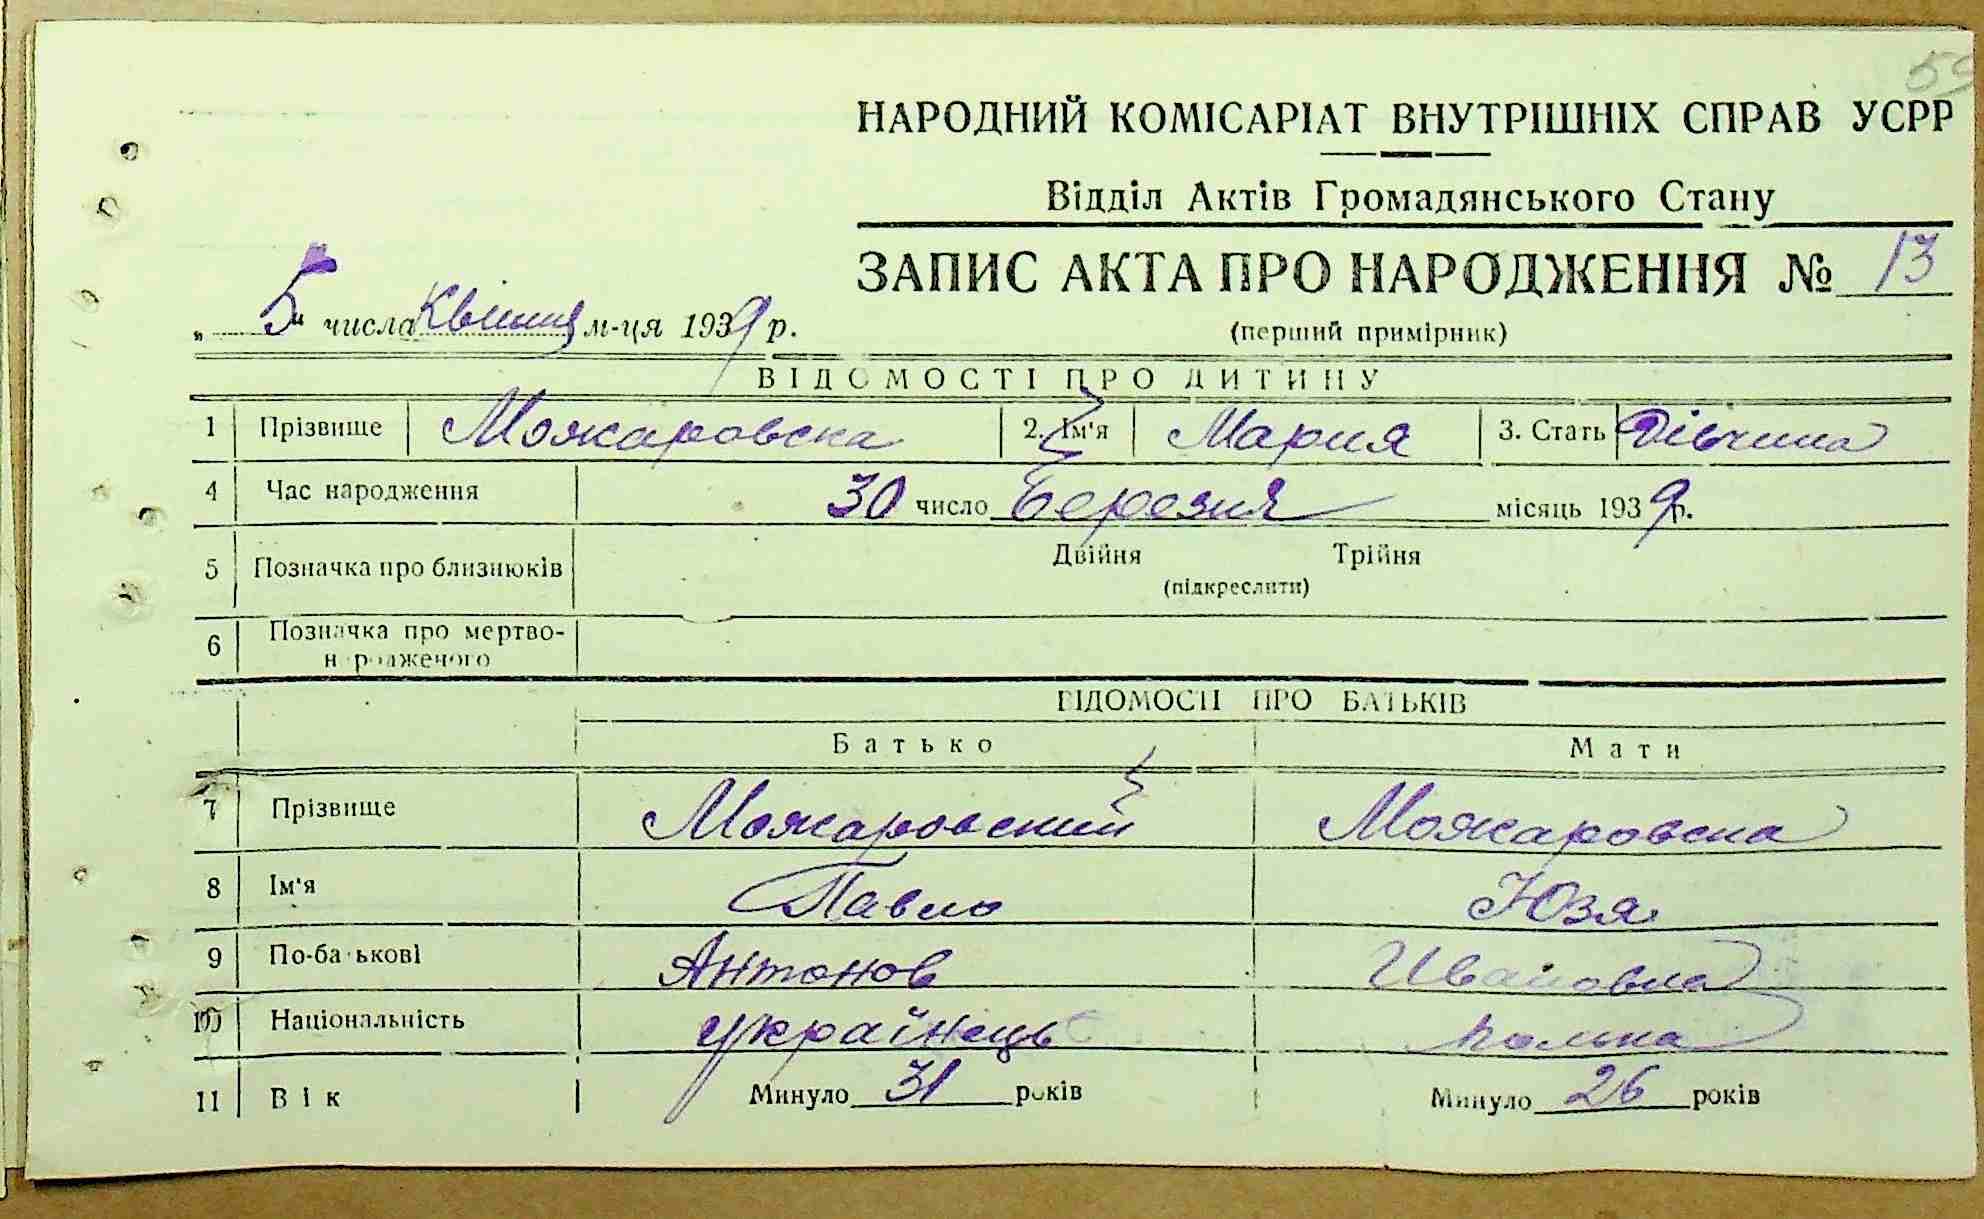 59
НАРОДНИЙ КОМІСАРІАТ ВНУТРІШНІХ СПРАВ УСРР
Відділ Актів Громадянського Стану
ЗАПИС АКТА ПРО НАРОДЖЕННЯ № 13
„5" числа Квітня м-ця 1939 р.
(перший примірник)
ВІДОМОСТІ ПРО ДИТИНУ
1 Прізвище Можаровска 2. Ім'я Мария 3. Стать Дівчина
4 Час народження 30 число Березня місяць 1939 р.
5 Позначка про близнюків Двійня Трійня
(підкреслити)
6 Позначка про мертво-
народженого
ВІДОМОСТІ ПРО БАТЬКІВ
Батько Мати
7 Прізвище Можаровский Можаровска
8 Ім'я Павло Юзя
9 По-батькові Антонов Ивановна
10 Національність українець полька
11 Вік Минуло 31 років Минуло 26 років